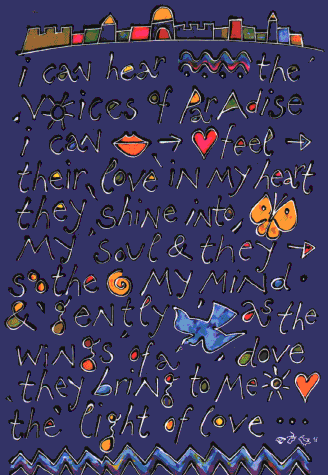 i can hear the
voices of paradise
i can feel
their love in my heart
they shine into
my soul & they
soothe my mind
& gently as the
wings of a dove
they bring to me
the light of love ...